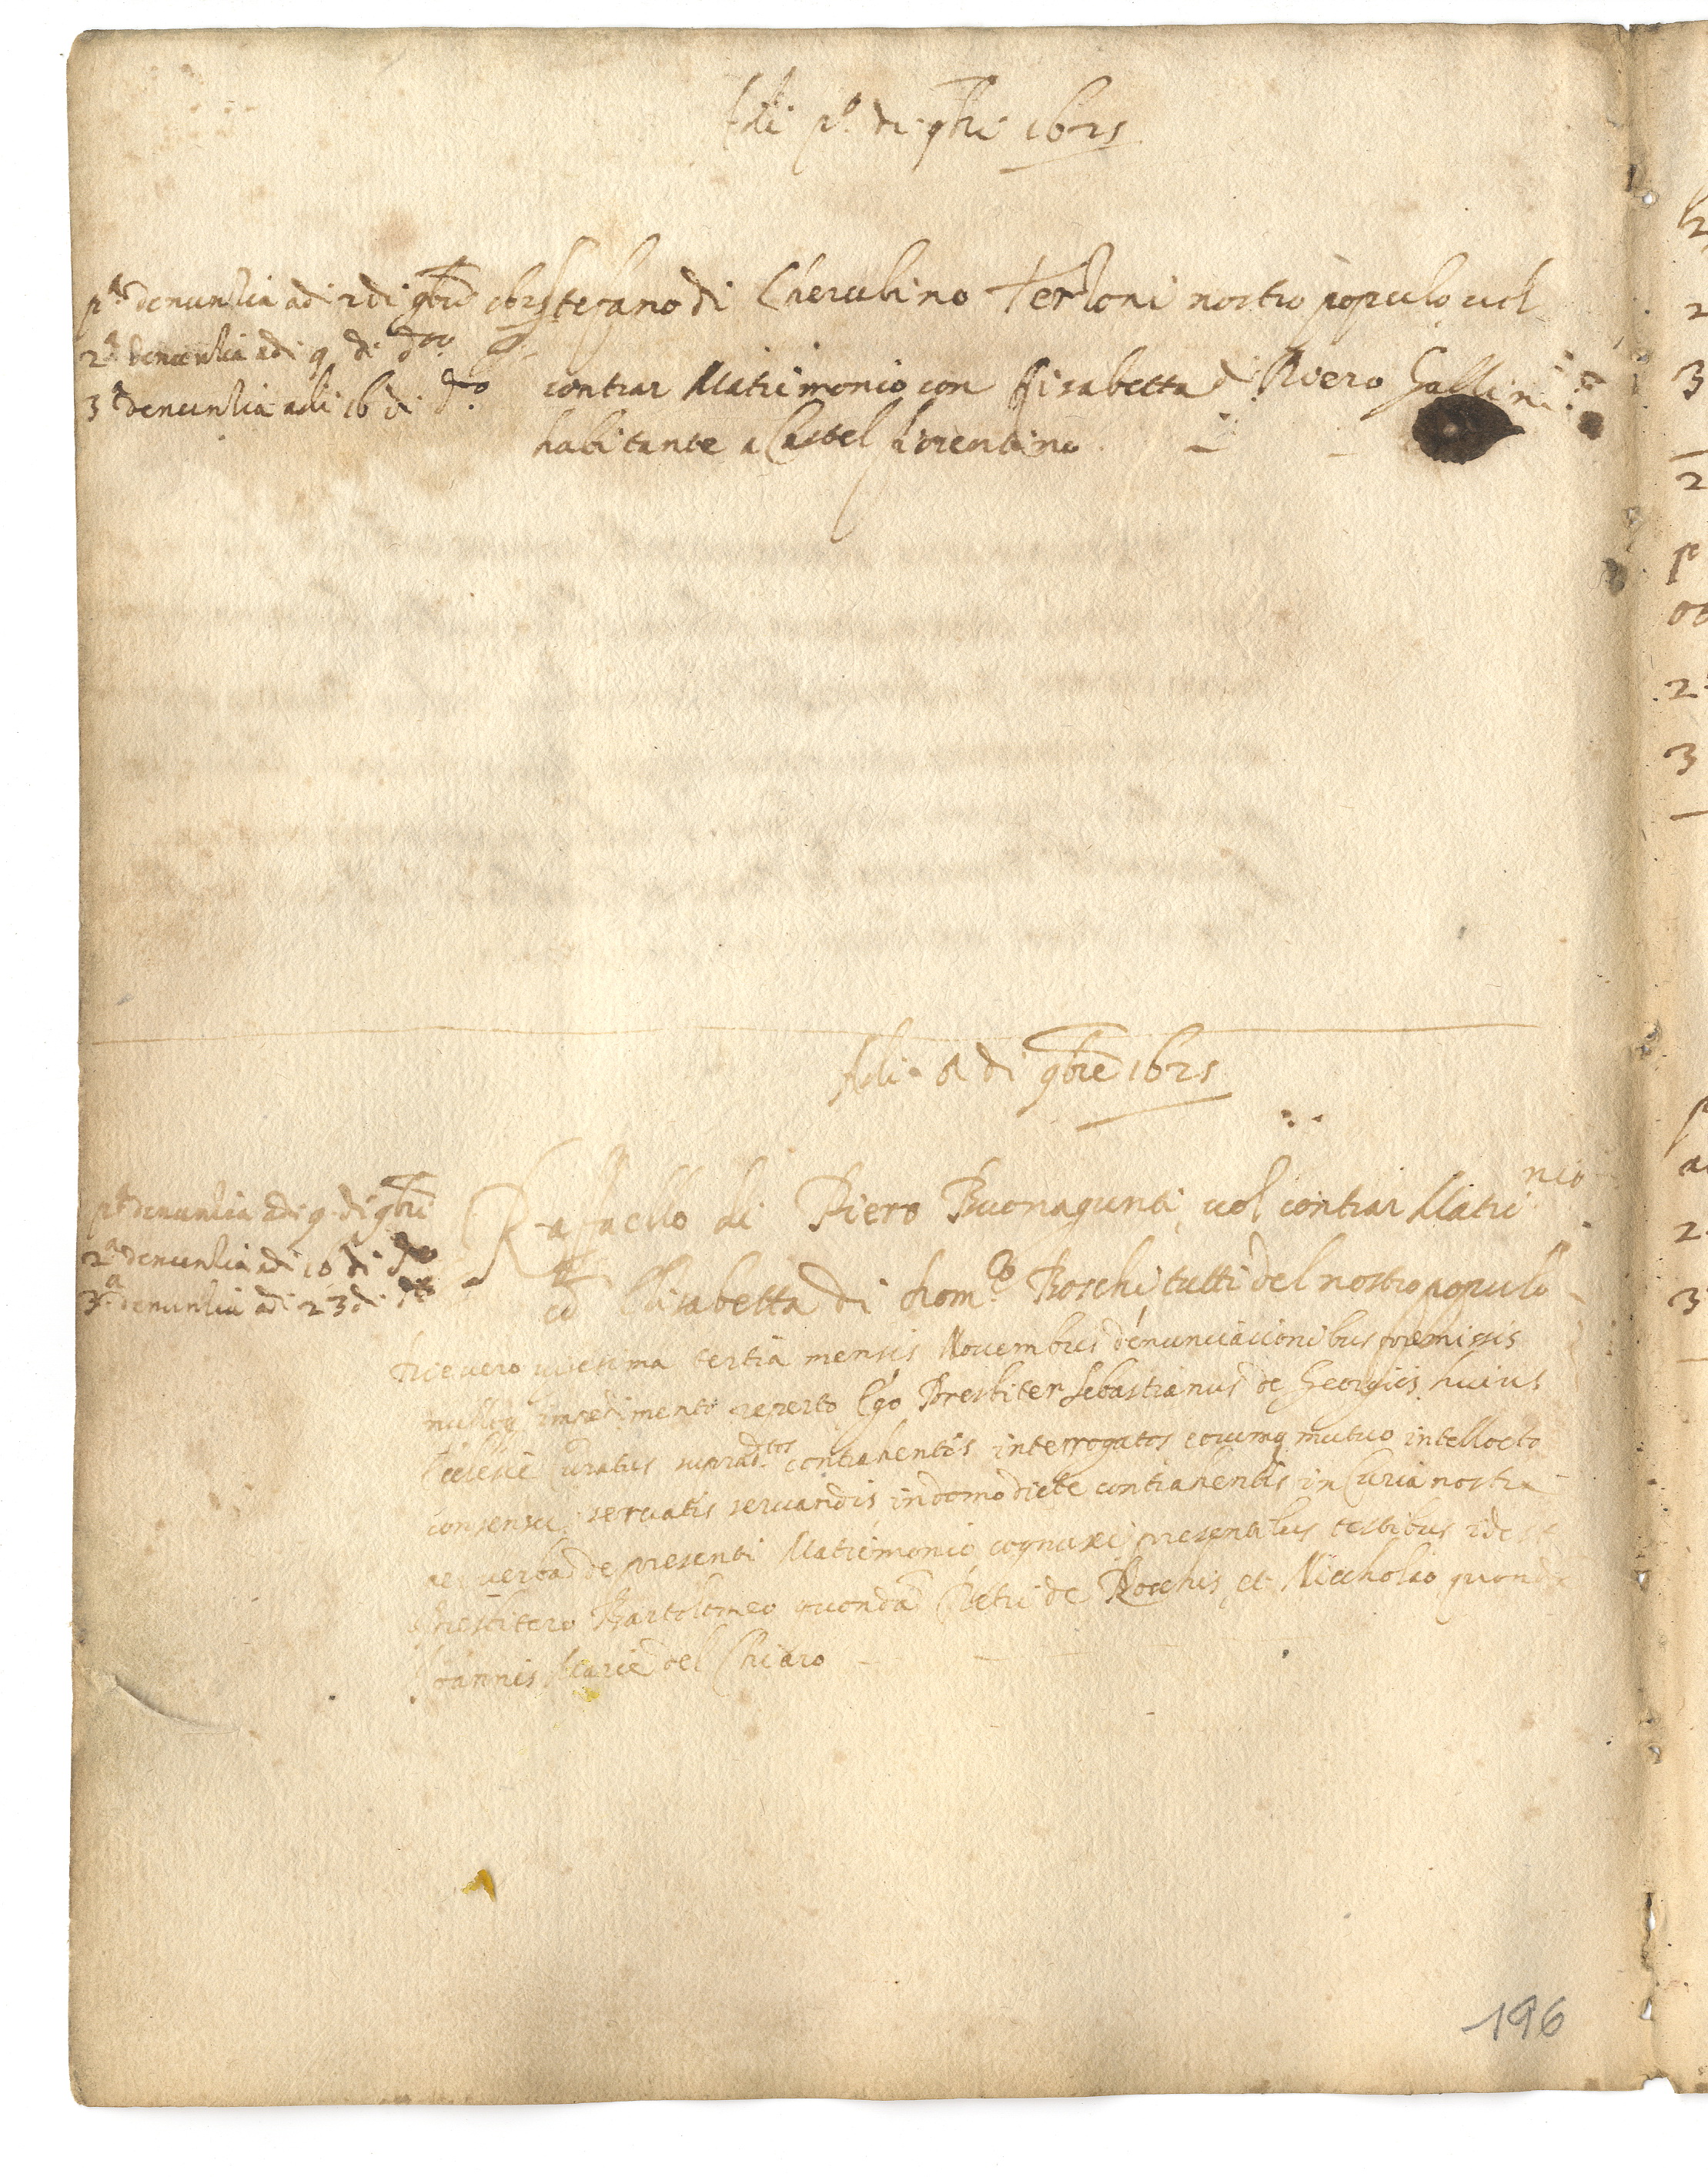 Adi pº. di 9bre 1625
pª denuntia adi 2 di 9bre 1625
2ª denuntia adi 9 di dtto
3ª denuntia adi 16 di dtto
Stefano di Cherubino Terloni nostro populo vol
contrar Matrimonio con Lisabetta di Piero Gallini
habitante a Castel fiorentino
Adi 8 di 9bre 1625
pª denuntia adi 9 di 9bre
2ª denuntia adi 16 di dtto
3ª denuntia adi 23 di dtto
Raffaello di Piero Buonagunti vol contrar Matrimonio
cō Elisabetta di Dom.co Boschi tutti del nostro populo
Die vero vicesima tertia mensis Novembris denunciacionibus premissis
nulloq impedimento reperto Ego Presbiter Sebastianus de Georgiis huius
Ecclesie Curatus suprad.tos contrahentis interrogatos eorumq mutuo intellecto
consensu servatis servandis in domo dicte contrahentis in Curia nostra
per verba de presenti Matrimonio cognuxi presentibus testibus
Presbitero Bartolomeo quondā Petri de Rocchis et Niccholao quondā
Joannis Marie del Chiaro
196